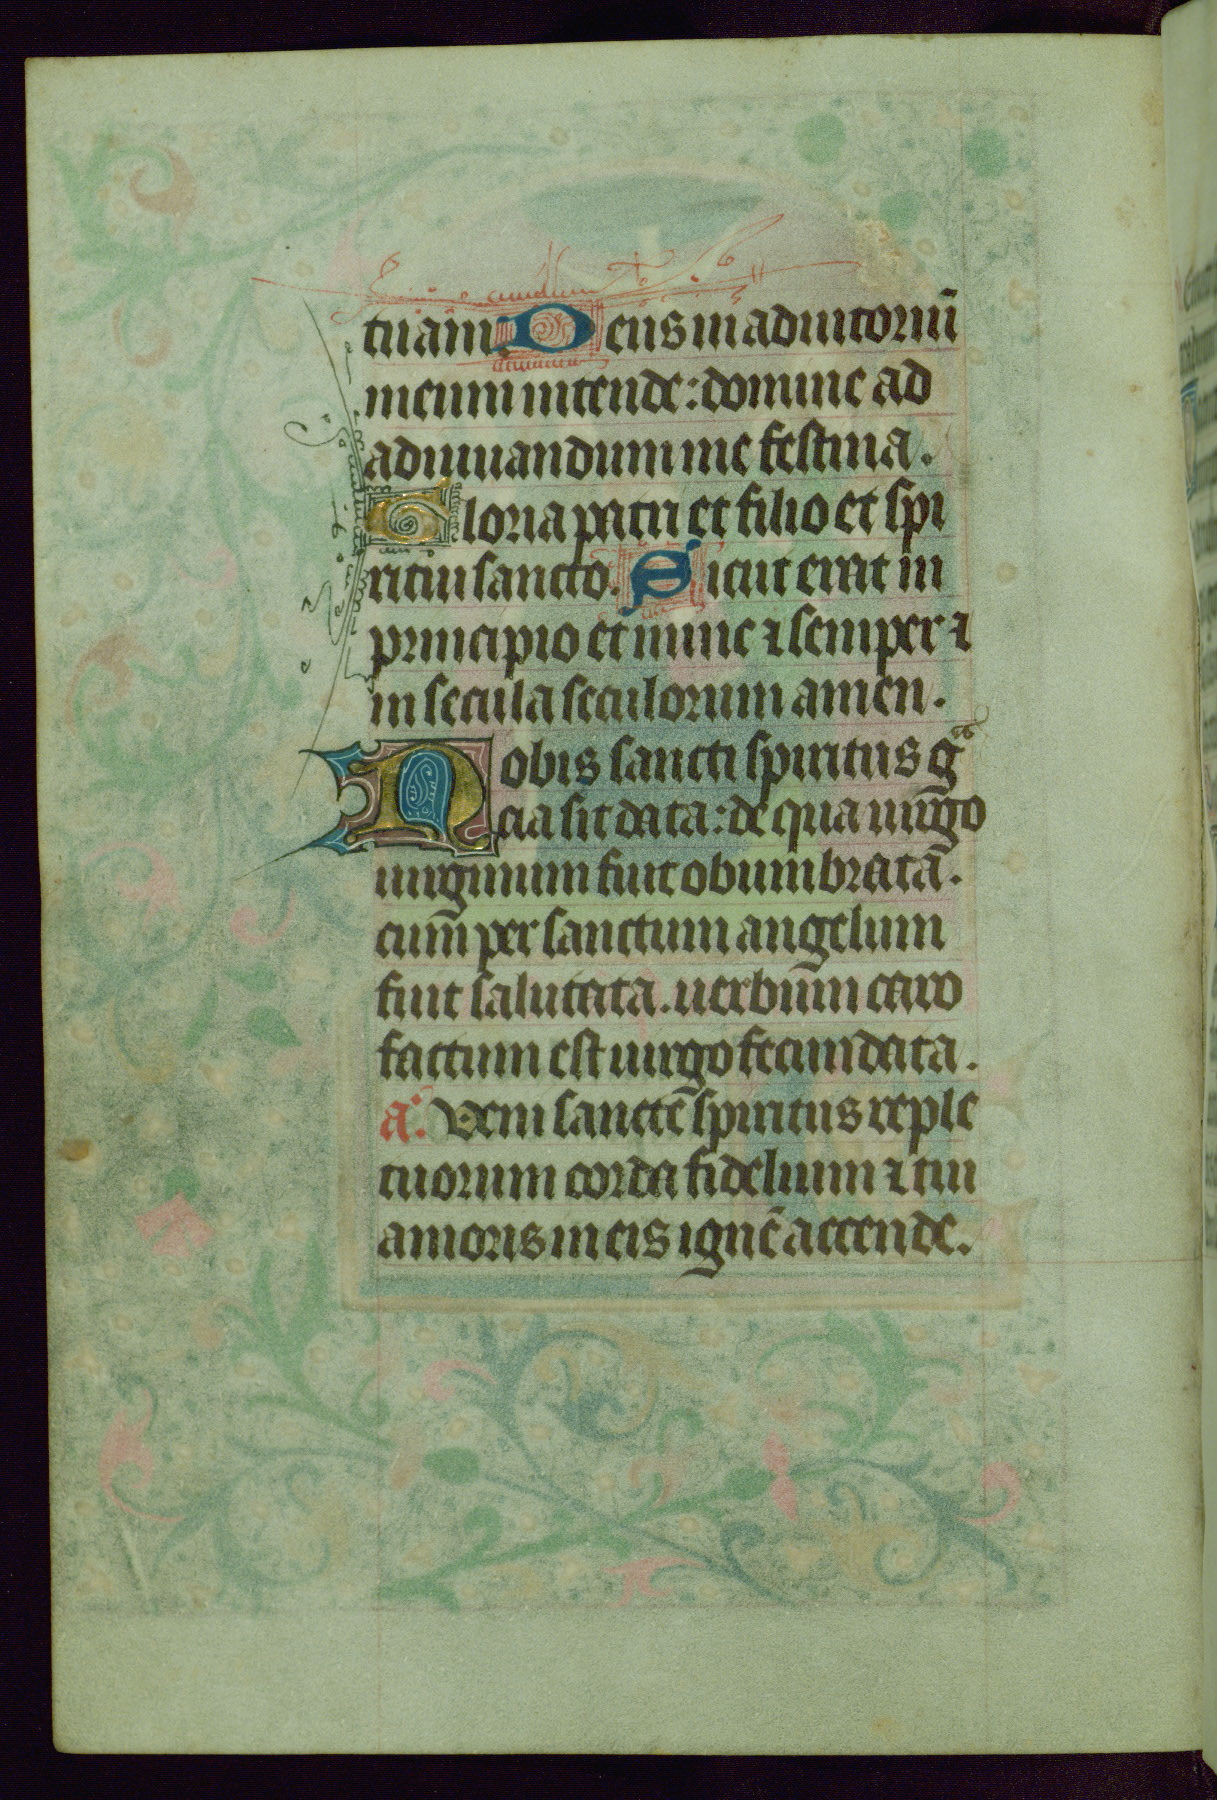 tuam. Deus in adiutoriū
meum intende: domine ad
adiuuandum me festina.
Gloria patri et filio et spi
ritui sancto. Sicut erat in
principio et nunc ⁊ semper ⁊
in secula seculorum amen.
Nobis sancti spiritus gᵃ
cia sit data: de qua uirgo
uirginum fuit obumbrata.
cum per sanctum angelum
fuit salutata. uerbum caro
factum est uirgo fecundata.
a. Veni sancte spiritus reple
tuorum corda fidelium ⁊ tui
amoris in eis ignē accende.